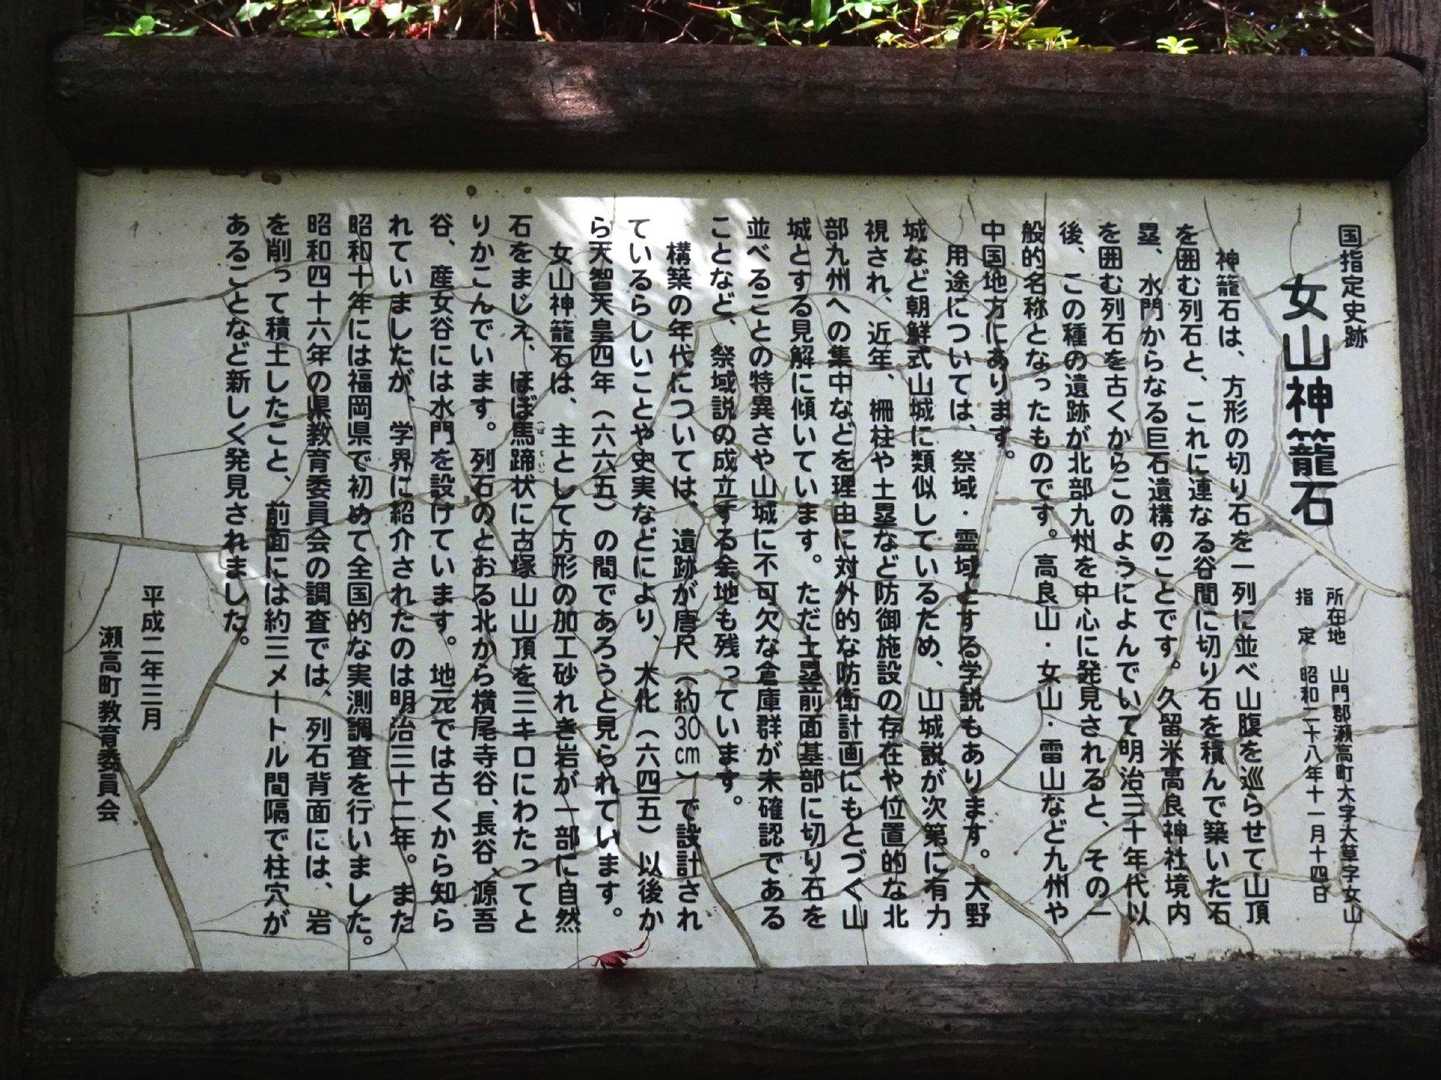 国指定史跡
女山神籠石
所在地 山門郡瀬高町大字大草字女山
指定 昭和二十八年十一月十四日
神籠石は、方形の切り石を一列に並べ山腹を巡らせて山頂
を囲む列石と、これに連なる谷間に切り石を積んで築いた石
塁、水門からなる巨石遺構のことです。久留米高良神社境内
を囲む列石を古くからこのようによんでいて明治三十年代以
後、この種の遺跡が北部九州を中心に発見されると、その一
般的名称となったものです。高良山・女山・雷山など九州や
中国地方にあります。
用途については、祭域・霊域とする学説もあります。大野
城など朝鮮式山城に類似しているため、山城説が次第に有力
視され、近年、柵柱や土塁など防御施設の存在や位置的な北
部九州への集中などを理由に対外的な防衛計画にもとづく山
城とする見解に傾いています。ただ土塁前面基部に切り石を
並べることの特異さや山城に不可欠な倉庫群が未確認である
ことなど、祭域説の成立する余地も残っています。
構築の年代については、遺跡が唐尺（約30㎝）で設計され
ているらしいことや史実などにより、大化（六四五）以後か
ら天智天皇四年（六六五）の間であろうと見られています。
女山神籠石は、主として方形の加工砂れき岩が一部に自然
石をまじえ、ほぼ馬蹄状に古塚山山頂を三キロにわたってと
りかこんでいます。列石のとおる北から横尾寺谷、長谷、源吾
谷、産女谷には水門を設けています。地元では古くから知ら
れていましたが、学界に紹介されたのは明治三十二年。また
昭和十年には福岡県で初めて全国的な実測調査を行いました。
昭和四十六年の県教育委員会の調査では、列石背面には、岩
を削って積土したこと、前面には約三メートル間隔で柱穴が
あることなど新しく発見されました。
平成二年三月
瀬高町教育委員会